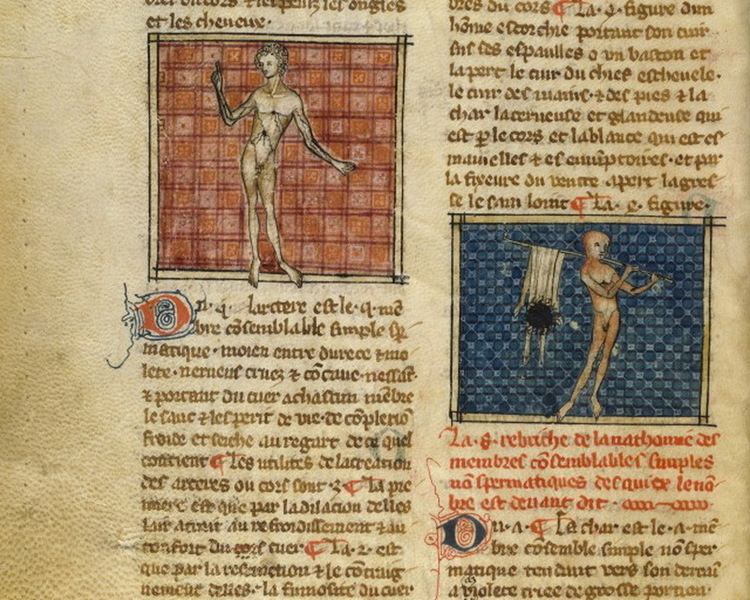 et les cheveux.
n. q. lartere est le. q. mē
bre cōsemblable simple sp
matique. moien entre durece ⁊ mo
lete. nerveus cruez ⁊ cōcave. nessāt.
⁊ portant du cuer a chascun mēbre
le sanc ⁊ lesperit de vie. de cōplexiō
froide et seiche au regart de ce quel
contient ¶ Les utilites de la creation
des arteres ou cors sont .2. ¶ La pre
miere est que par la dilacion delles
lair atrait au refroidissement ⁊ au
confort du cors cuer ¶ La .2. est
que par la ⁊ le
nemeut delles. la fumosite du cuer
bres du cors ¶ La .q. figure dun
hōme escorchie portant son cuir
sus ses espaulles o un baston et
la pert le cuir du chief eschevele.
le cuir des mains. ⁊ des pies ⁊ la
char lacerteuse et glandeuse qui
est p̱ le cors et la blance qui est es
mamelles ⁊ es emuptoires. et par
la fixeure du ventre. apert la gres
se le sain ¶ La .e. figure.
La .8. rebriche de la nathomie des
membres cōsemblables simples
nō spermatiques desquiex le nō
bre est devant dit.
u. a. ¶ La char est le .a. mē
bre cōsemble simple nō sper
matique tendant vers son
violete criee de grosse porcion